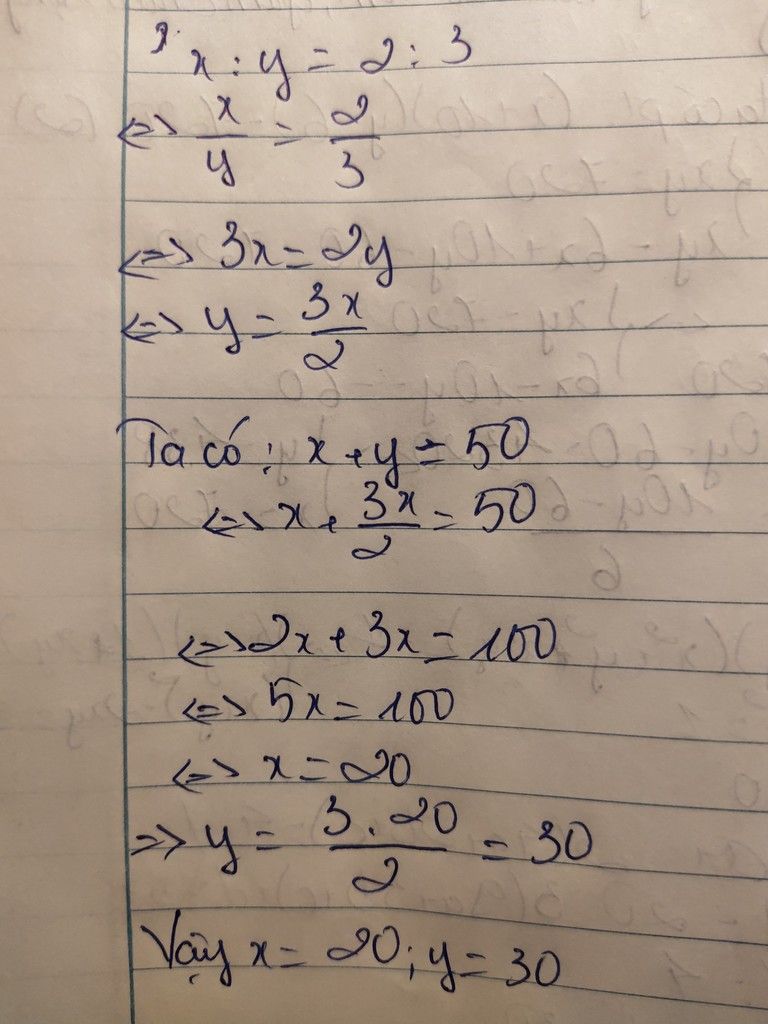 x : y = 2 : 3
<=> x/y = 2/3
<=> 3x = 2y
<=> y = 3x/2
Ta có: x + y = 50
<=> x + 3x/2 = 50
<=> 2x + 3x = 100
<=> 5x = 100
<=> x = 20
=> y = 3 . 20/2 = 30
Vậy x = 20; y = 30